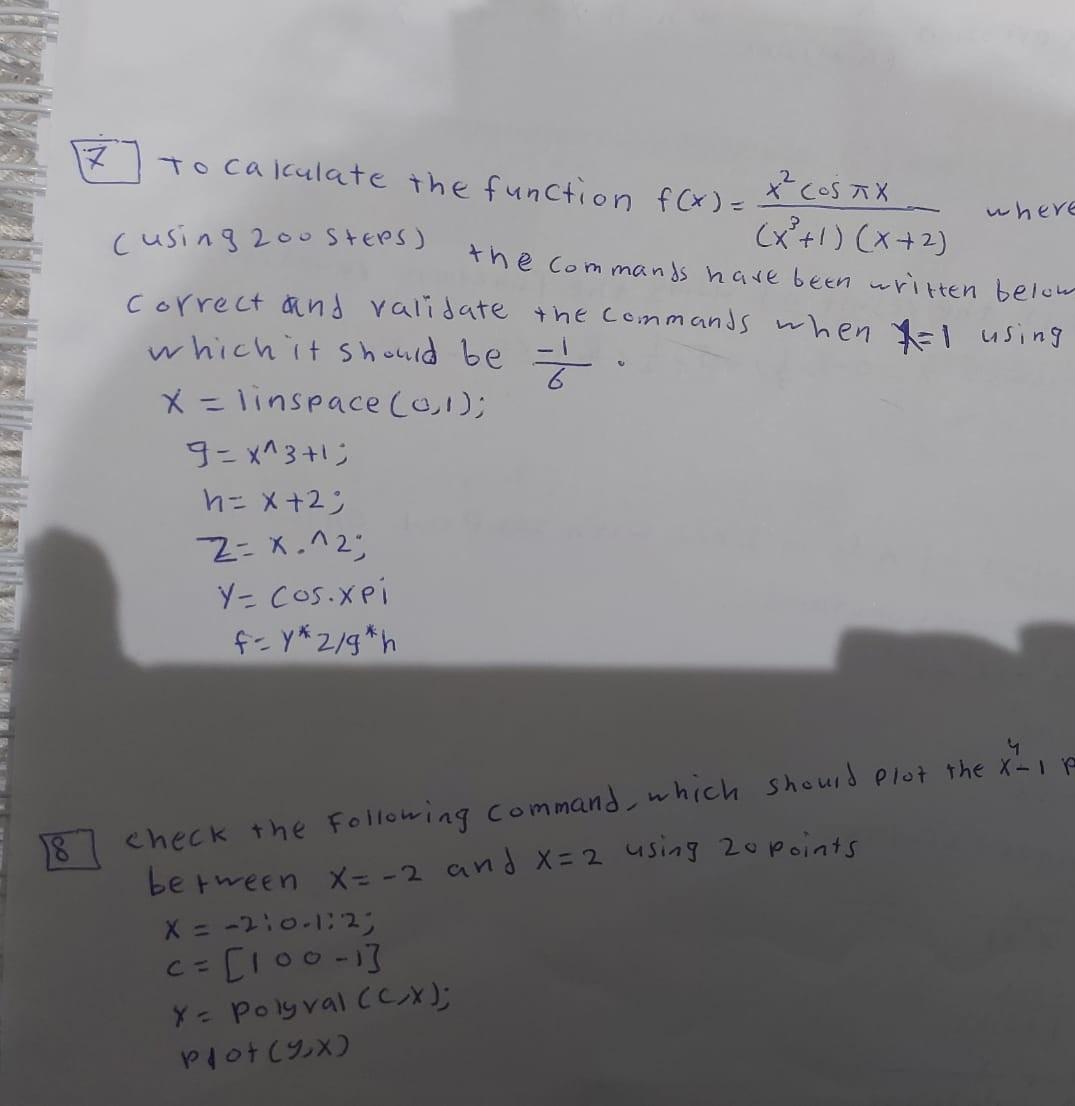 7 To calculate the function f(x) = x² cos πx / (x³+1) (x+2) where
(using 200 steps) the commands have been written below
correct and validate the commands when x=1 using
which it should be -1/6 .
X = linspace(0,1);
g = x^3+1;
h = x+2;
z = x.^2;
y = cos.xpi
f = y*z/g*h
8 check the Following command, which should plot the x⁴-1
between x=-2 and x=2 using 20 points
x = -2:0.1:2;
c = [1 0 0 -1]
y = polyval(c,x);
plot(y,x)